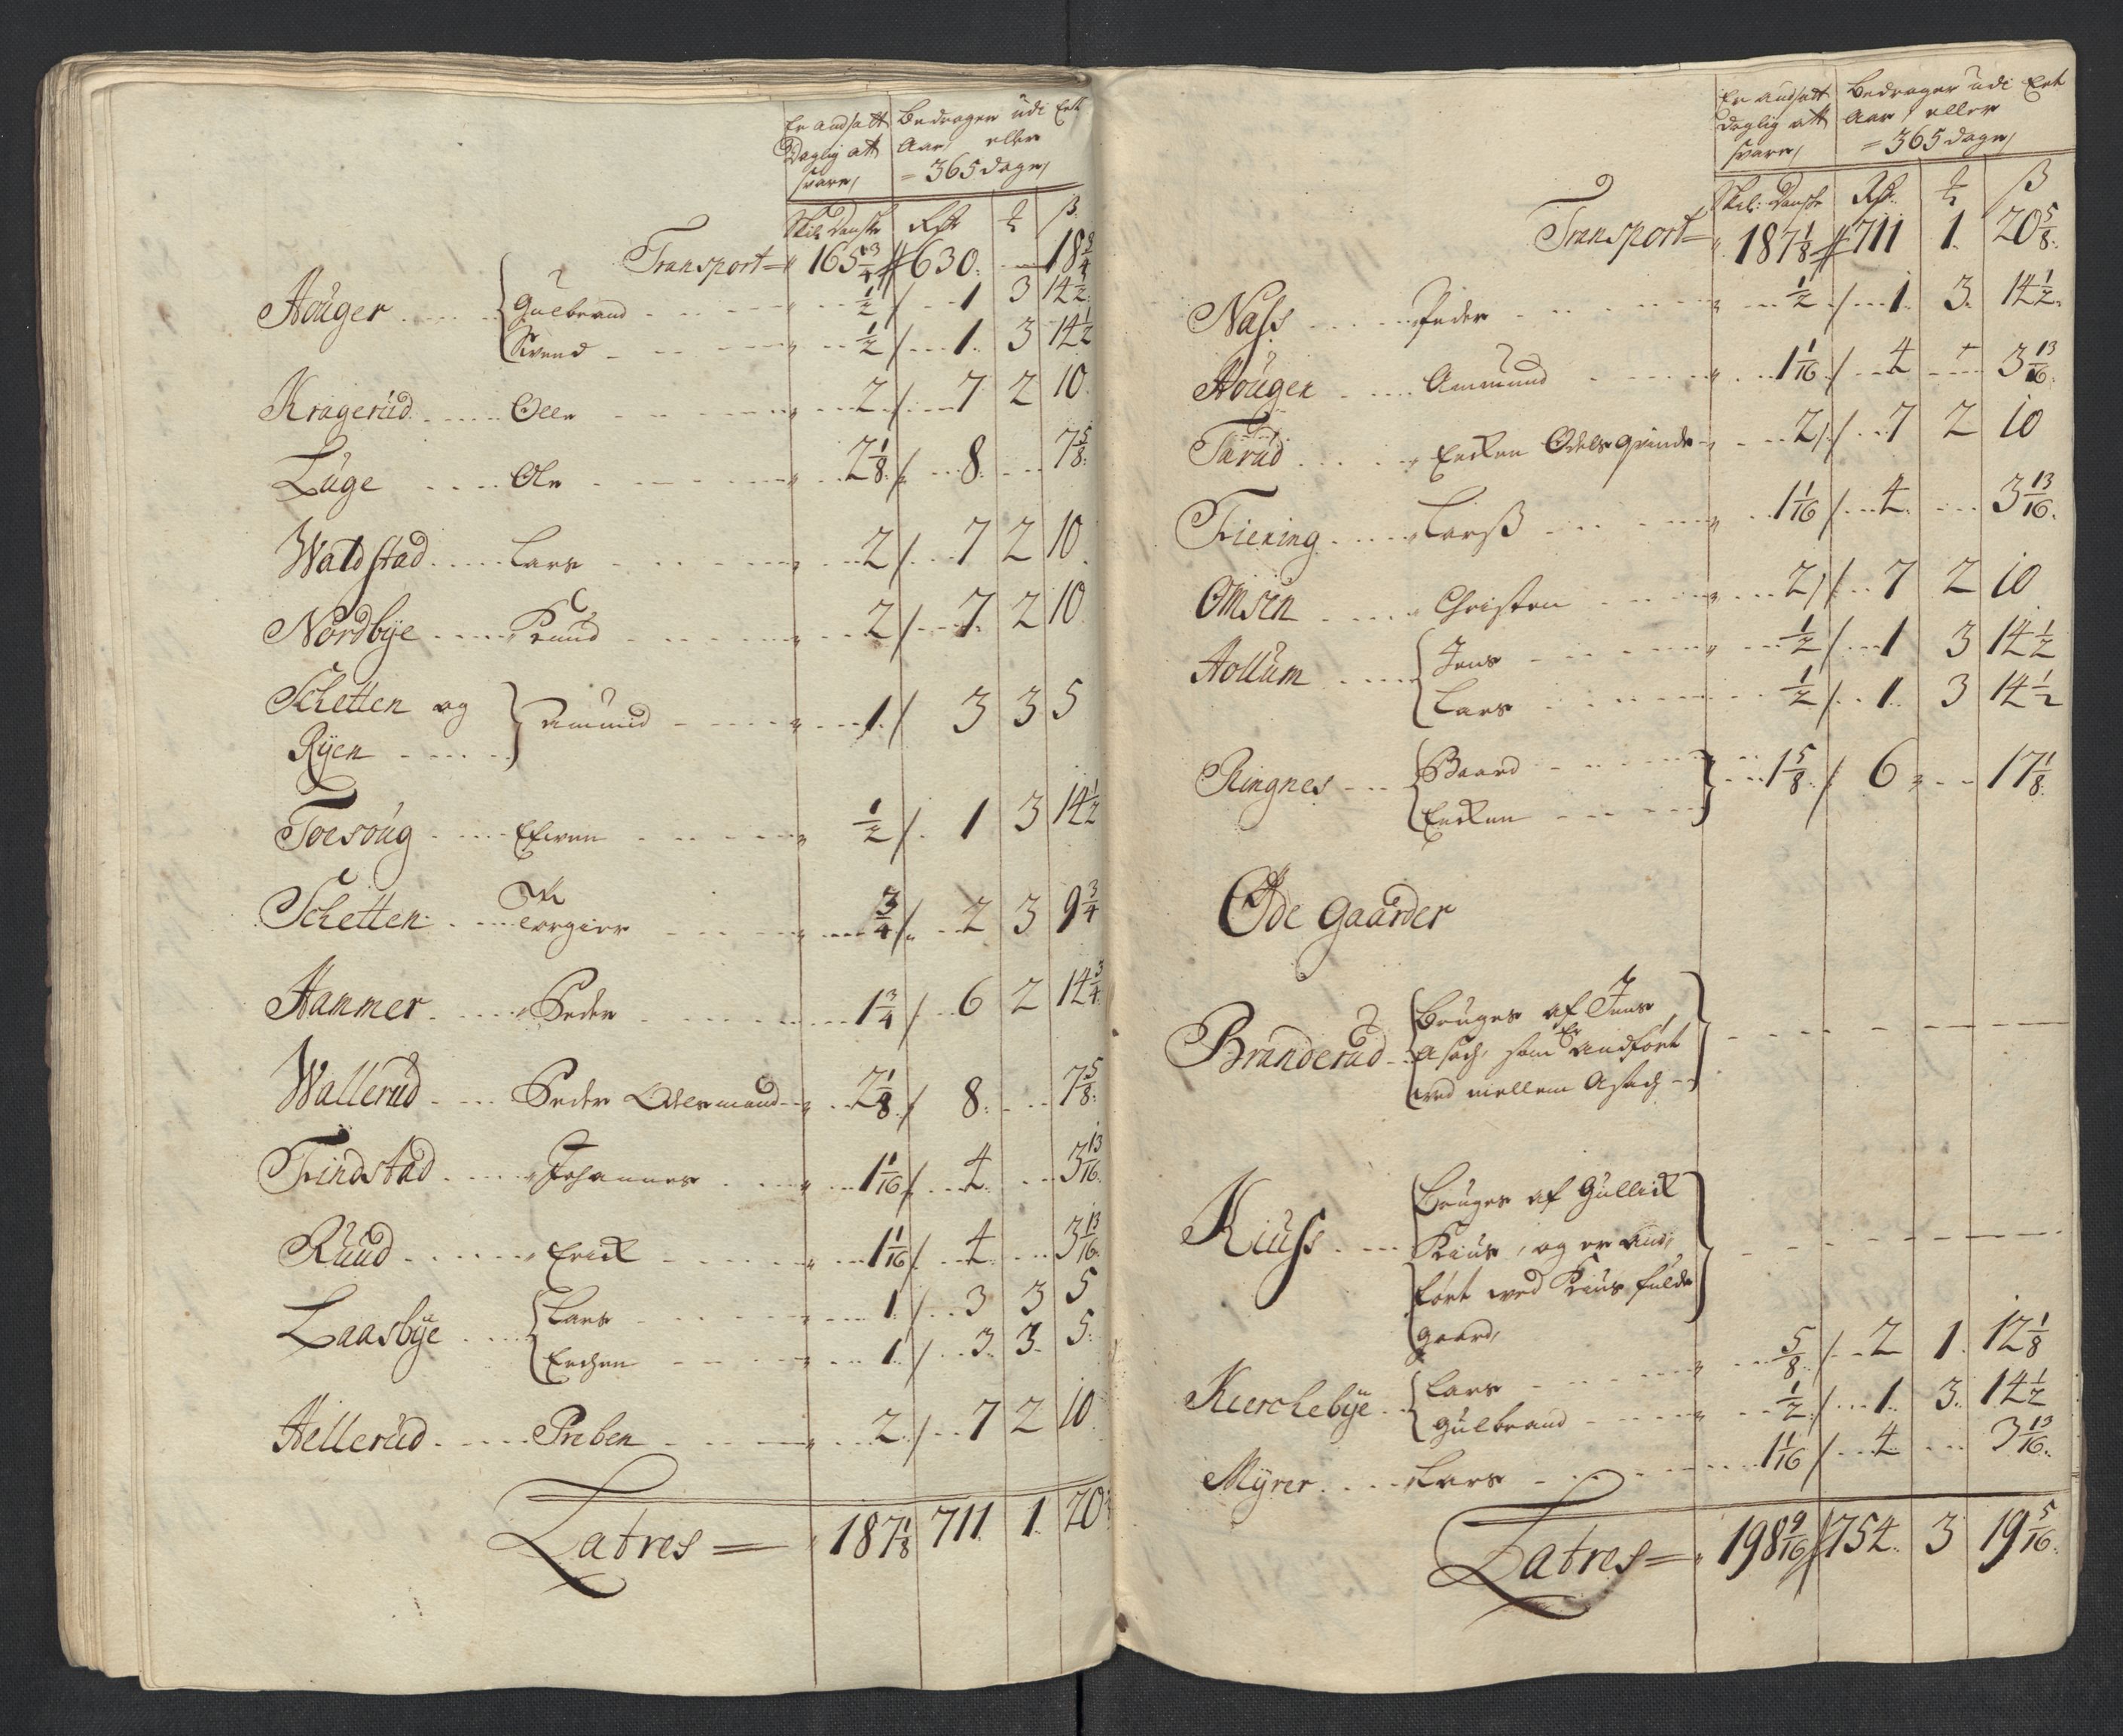 Er andsatt
Daglig att
svare,
Bedrager udi Ett
Aar, eller
= 365 dage,
Skil Danske Rdr ß
Transport = 165 3/4 630 18 3/4
Houger Gulbrand 1/2 1 3 14 1/2
Svend 1/2 1 3 14 1/2
Kragerud Olle 2 7 2 10
Luge Ole 2 1/8 8 7 5/8
Waldstad Lars 2 7 2 10
Nordbye Knud 2 7 2 10
Schetten og
Ryen Amund 1 3 3 5
Toesoug Efwen 1/2 1 3 14 1/2
Schetten Torgier 3/4 2 3 9 3/4
Hammer Peder 1 3/4 6 2 14 3/4
Wallerud Peder Odelsmand 2 1/8 8 7 5/8
Findstad Johannes 1 1/16 4 3 13/16
Ruud Erick 1 1/16 4 3 13/16
Laasbye Lars 1 3 3 5
Erchen 1 3 3 5
Hellerud Preben 2 7 2 10
Latres = 187 1/8 711 1 20
Er andsatt
daglig att
svare,
Bedrager udi Ett
Aar, eller
= 365 dage,
Skil: Danske Rdr ß
Transport = 187 1/8 711 1 20 5/8
Næss Peder 1/2 1 3 14 1/2
Houger Ammund 1 1/16 4 3 13/16
Turud Encken Odels qvinde 2 7 2 10
Fiening Larß 1 1/16 4 3 13/16
Omsen Christen 2 7 2 10
Hollum Jens 1/2 1 3 14 1/2
Lars 1/2 1 3 14 1/2
Ringnes Baard
Encken 1 5/8 6 17 1/8
Øde Gaarder
Branderud Bruges af Jens
Asach, som Er andført
ved mellem Asach
Kiuss Bruges af Gullick
Kius, og er and,
ført ved Kius fulde
gaard,
Kierchebye Lars 5/8 2 1 12 1/8
Gulbrand 1/2 1 3 14 1/2
Myrer Lars 1 1/16 4 3 13/16
Latres = 198 9/16 754 3 19 5/16